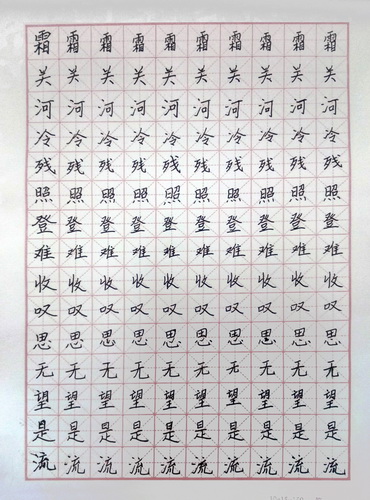 霜霜霜霜霜霜霜霜霜霜
关关关关关关关关关关
河河河河河河河河河河
冷冷冷冷冷冷冷冷冷冷
残残残残残残残残残残
照照照照照照照照照照
登登登登登登登登登登
难难难难难难难难难难
收收收收收收收收收收
叹叹叹叹叹叹叹叹叹叹
思思思思思思思思思思
无无无无无无无无无无
望望望望望望望望望望
是是是是是是是是是是
流流流流流流流流流流